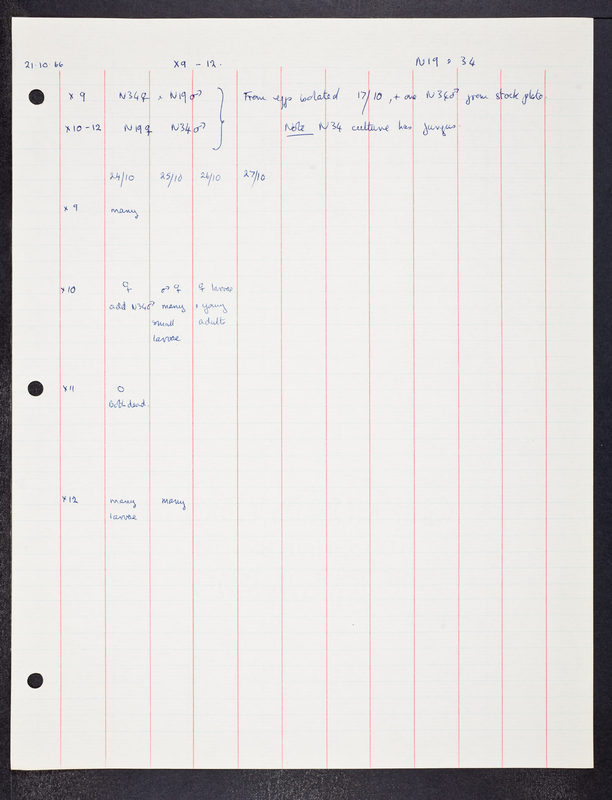 21·10·66 X9 - 12. N19 × 34
X 9 N34♀ × N19♂ } From eggs isolated 17/10, + one N34♂ from stock plate
X10-12 N19♀ N34♂ Note N34 culture has fungus
24/10 25/10 26/10 27/10
X 9 many
X10 ♀ ♂ ♀ ♀ larvae
add N34♂ many + young
small adults
larvae
X11 0
Both dead.
X12 many many
larvae